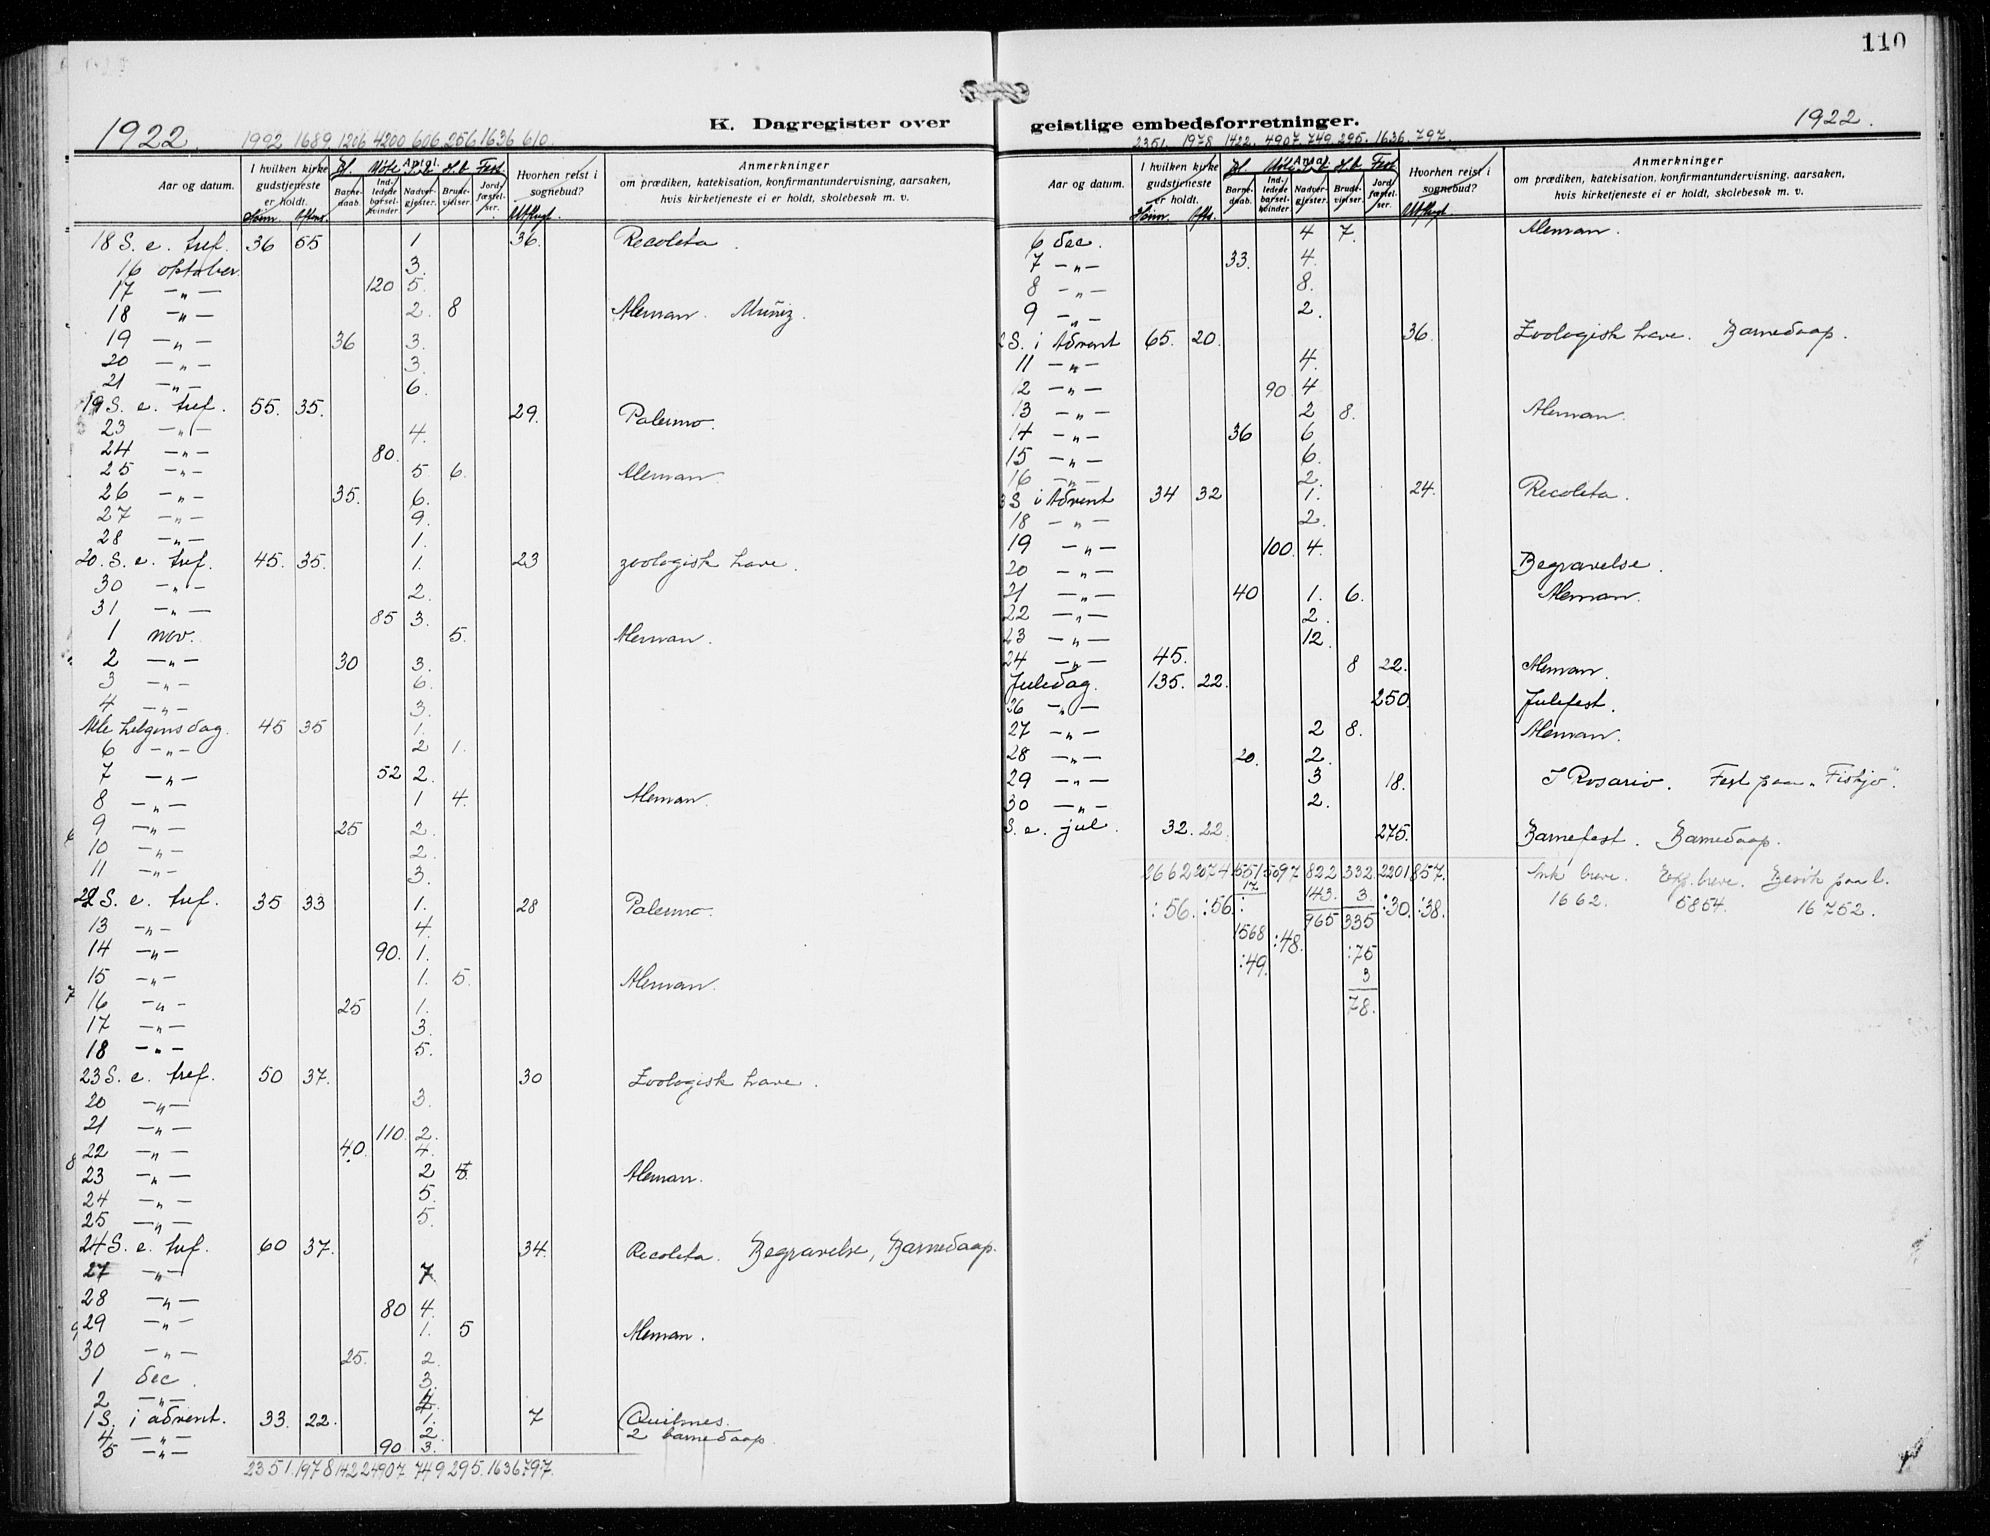 110
1922. K. Dagregister over geistlige embedsforretninger. 1922.
1992 1689 1206 4200 606 256 1636 610.
2351. 1978. 1422. 4907. 749. 295. 1636. 797.
Aar og datum. I hvilken kirke gudstjeneste er holdt. Antal. Barne-daab. Ind-ledede barsel-kvinder Nadver-gjester. Brude-vielser. Jord-fæstel-ser. Hvorhen reist i sognebud? Anmerkninger om prædiken, katekisation, konfirmantundervisning, aarsaken, hvis kirketjeneste ei er holdt, skolebesøk m. v.
Form. Aftens. Møte Fest
18 S. e. tref. 36 55 1 36. Recoleta.
16 oktober 3.
17 -"- 120 5.
18 -"- 2. 8 Aleman. Muñiz.
19 -"- 36 3.
20 -"- 3.
21 -"- 6.
19 S. e. tref. 55. 35. 29. Palermo.
23 -"- 4.
24 -"- 80.
25 -"- 5 6. Aleman.
26 -"- 35. 6.
27 -"- 9.
28 -"- 1.
20. S. e. tref. 45. 35. 1. 23 zoologisk have.
30 -"- 2.
31 -"- 85 3.
1 nov. 5. Aleman.
2 -"- 30 3.
3 -"- 6.
4 -"- 3.
Alle helgensdag. 45 35 1.
6 -"- 2 1.
7 -"- 52 2.
8 -"- 1 4. Aleman.
9 -"- 25 2.
10 -"- 2.
11 -"- 3.
22 S. e. tref. 35 33 1. 28 Palermo.
13 -"- 4.
14 -"- 90. 1.
15 -"- 1. 5. Aleman.
16 -"- 25 1.
17 -"- 3.
18 -"- 5.
23 S. e. tref. 50 37. 30 Zoologisk have.
20 -"- 3.
21 -"- 110. 2.
22 -"- 40. 4.
23 -"- 2 Aleman.
24 -"- 5.
25 -"- 5.
24 S. e. tref. 60 37. 34. Recoleta. Begravelse, Barnedaap.
27 -"- 7.
28 -"- 80 4.
29 -"- 1. 5 Aleman.
30 -"- 25. 2.
1 dec. 3.
2 -"-
1 S. i advent. 33. 22. 1. 7 Quilmes.
4 -"- 2. 2 barnedaap
5 -"- 90 3.
2351. 1978 1422 4907 749 295. 1636 797.
Aar og datum. I hvilken kirke gudstjeneste er holdt. Antal. Barne-daab. Ind-ledede barsel-kvinder Nadver-gjester. Brude-vielser. Jord-fæstel-ser. Hvorhen reist i sognebud? Anmerkninger om prædiken, katekisation, konfirmantundervisning, aarsaken, hvis kirketjeneste ei er holdt, skolebesøk m. v.
Form. Afts. Møte Fest
6 dec. 4 7. Aleman.
7 -"- 33. 4.
8 -"- 8.
9 -"- 2.
2 S. i Advent 65. 20. 36. Zoologisk have. Barnedaap.
11 -"- 4.
12 -"- 90. 4
13 -"- 2 8. Aleman.
14 -"- 36 6
15 -"- 6.
16 -"- 2.
3 S i Advent 34 32 1. 24. Recoleta.
18 -"- 2.
19 -"- 100. 4.
20 -"- Begravelse.
21 -"- 40 1. 6. Aleman.
22 -"- 2.
23 -"- 12.
24 -"- 45. 8 22. Aleman.
Juledag. 135. 22.
26 -"- 250. Julefest.
27 -"- 2 8. Aleman.
28 -"- 20. 2.
29 -"- 3 18. I Rosario. Fest paa "Fiskjö".
30 -"- 2.
S. e. jul. 32. 22. 275. Barnefest. Barnedaap.
2662 2074 1551 5097 822 332. 2201 857. Ink breve. Exp. breve. Besök paa l.
17 143. 3. 1662. 5854. 16752.
:56. :56. : 965 335 :30. :38.
1568 :48. :75
:49. 3
78.